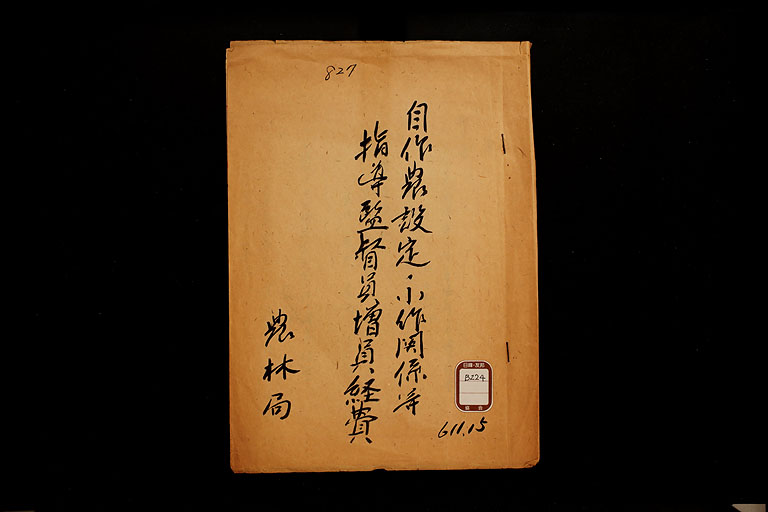 827
自作農設定・小作関係等
指導監督員増員経費
農林局
B224
協会
611.15